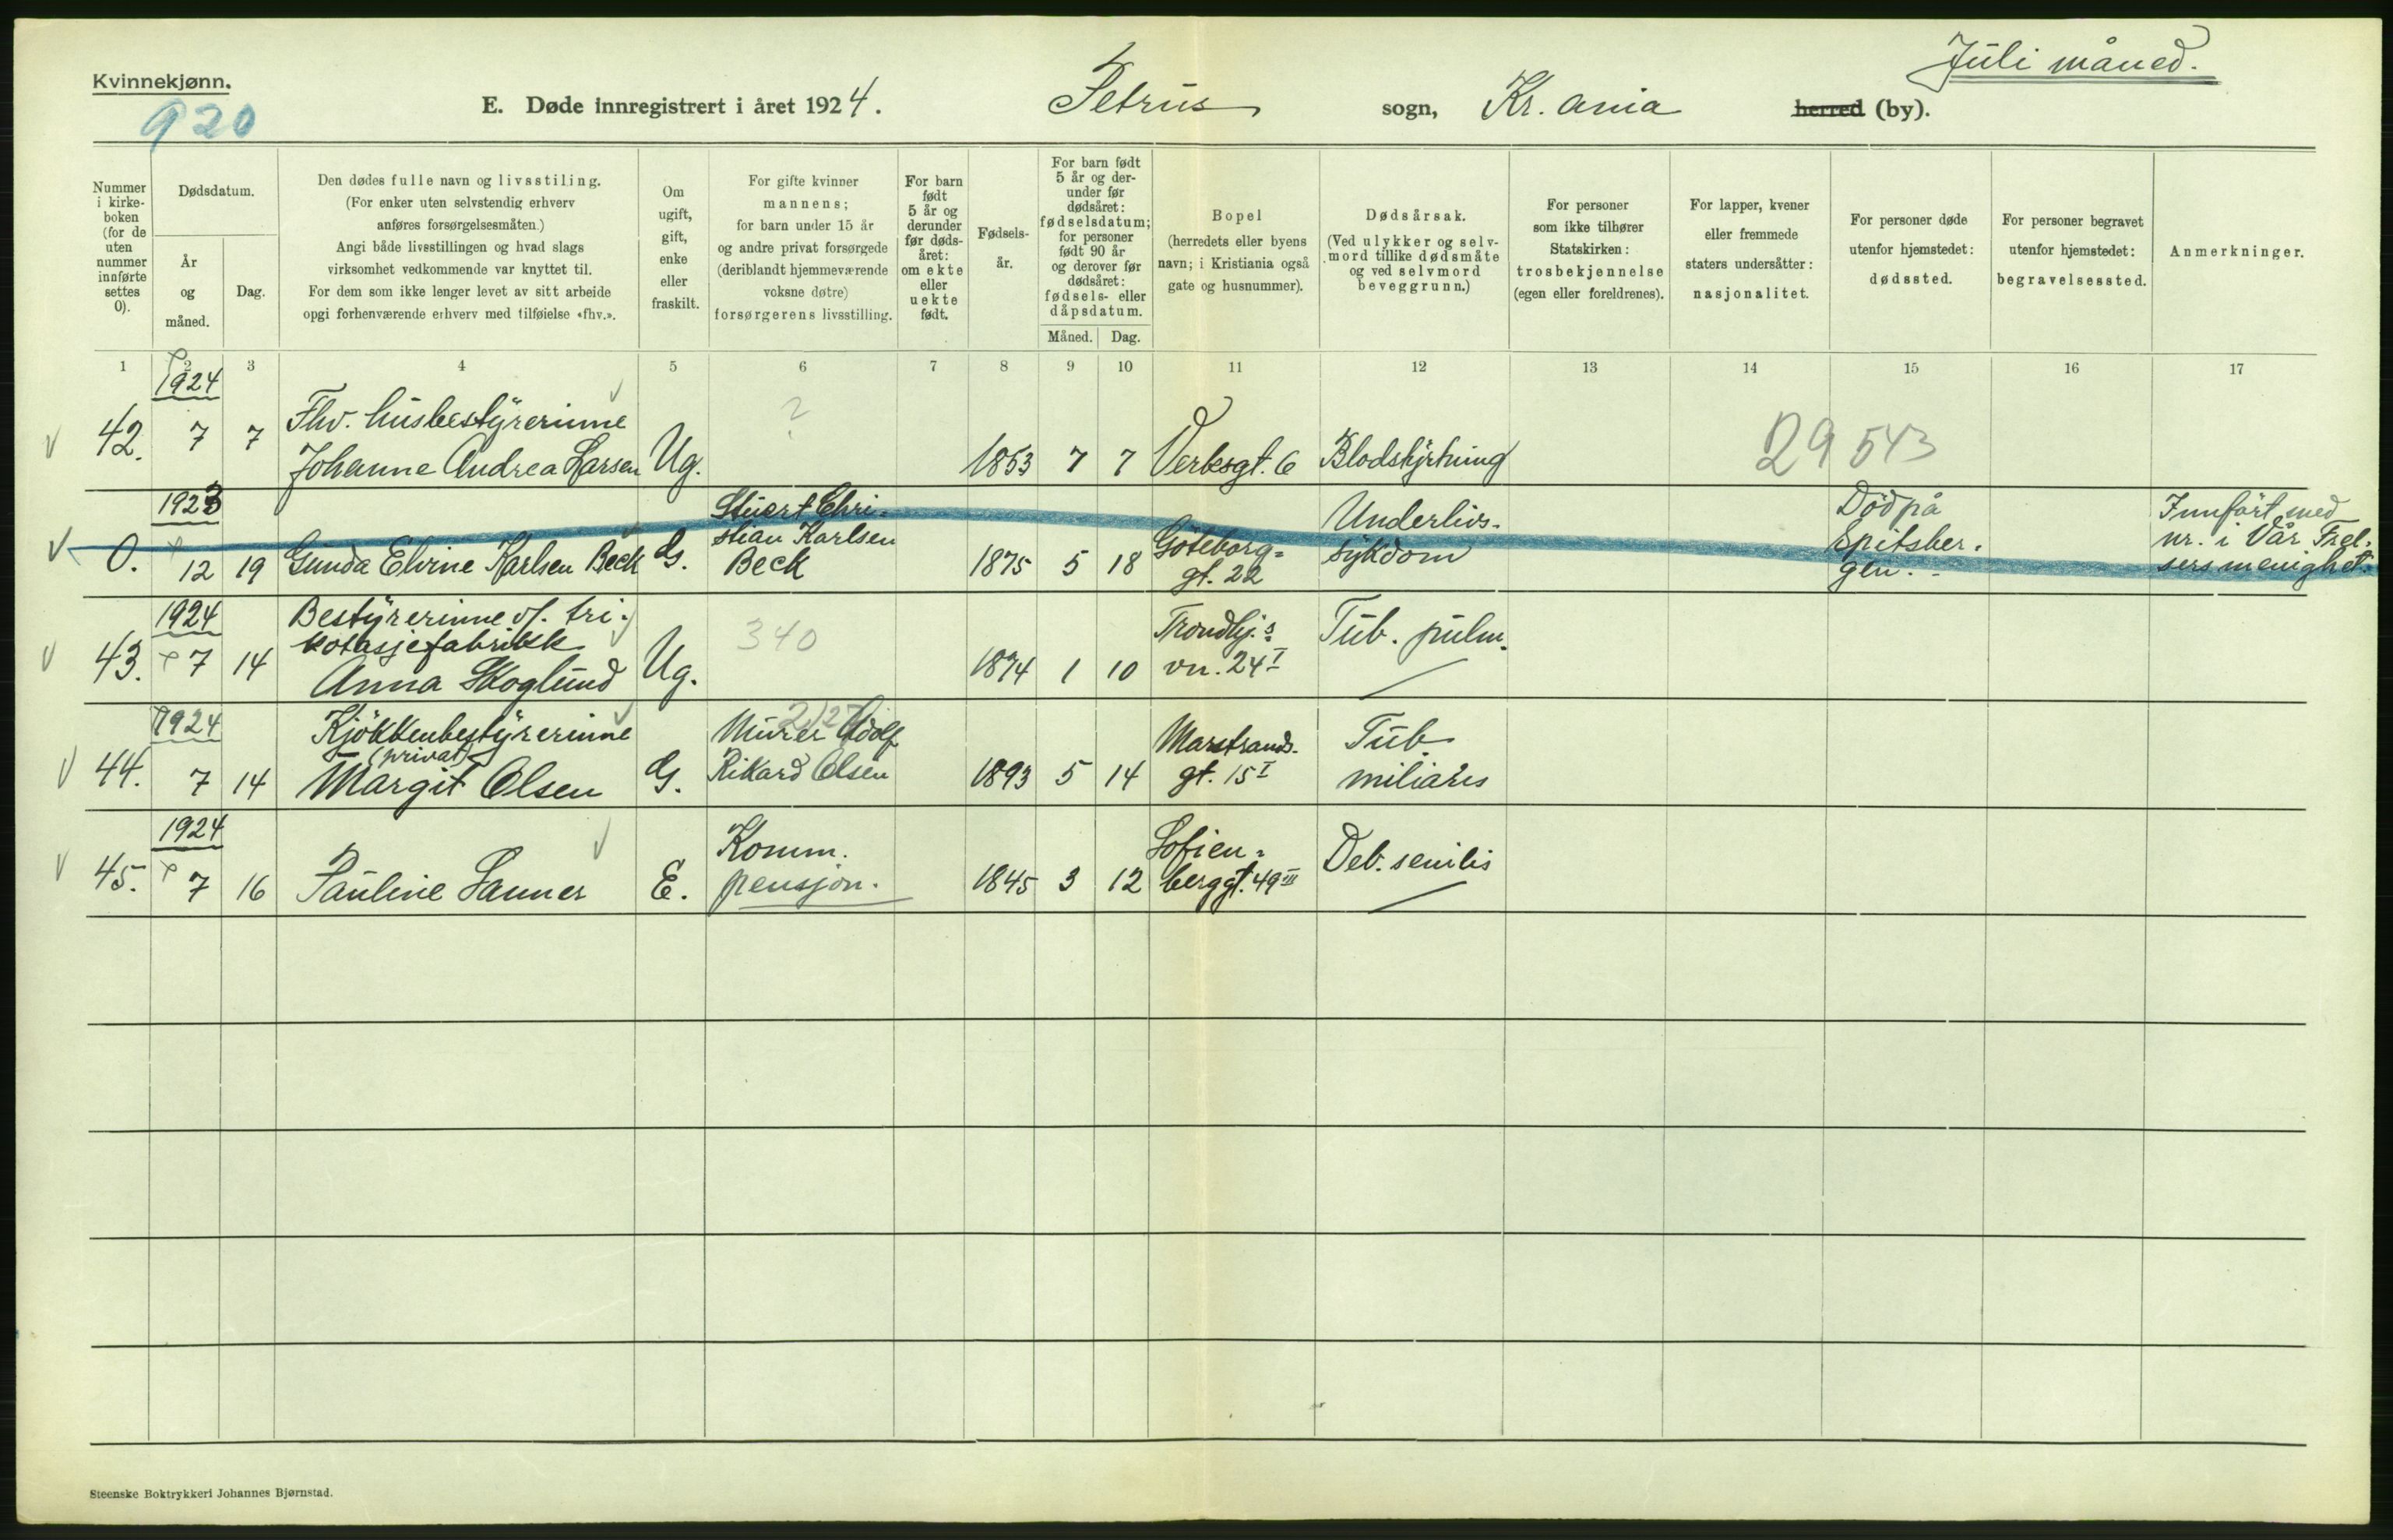 Juli måned.
Kvinnekjønn.
920
E. Døde innregistrert i året 1924.
Petrus sogn, Kr.ania herred (by).
Nummer i kirke-boken (for de uten nummer innførte settes 0).
Dødsdatum.
År og måned.
Dag.
Den dødes fulle navn og livsstiling.
(For enker uten selvstendig erhverv
anføres forsørgelsesmåten.)
Angi både livsstillingen og hvad slags
virksomhet vedkommende var knyttet til.
For dem som ikke lenger levet av sitt arbeide
opgi forhenværende erhverv med tilføielse «fhv.».
Om
ugift,
gift,
enke
eller
fraskilt.
For gifte kvinner
mannens;
for barn under 15 år
og andre privat forsørgede
(deriblandt hjemmeværende
voksne døtre)
forsørgerens livsstilling.
For barn
født
5 år og
derunder
før døds-
året:
om ekte
eller
uekte
født.
Fødsels-
år.
For barn født
5 år og der-
under før
dødsåret:
fødselsdatum;
for personer
født 90 år
og derover før
dødsåret:
fødsels- eller
dåpsdatum.
Måned. Dag.
Bopel
(herredets eller byens
navn; i Kristiania også
gate og husnummer).
Dødsårsak.
(Ved ulykker og selv-
mord tillike dødsmåte
og ved selvmord
beveggrunn.)
For personer
som ikke tilhører
Statskirken:
trosbekjennelse
(egen eller foreldrenes).
For lapper, kvener
eller fremmede
staters undersåtter:
nasjonalitet.
For personer døde
utenfor hjemstedet:
dødssted.
For personer begravet
utenfor hjemstedet:
begravelsessted.
Anmerkninger.
1 2 3 4 5 6 7 8 9 10 11 12 13 14 15 16 17
1924
42. 7 7
Fhv. husbestyrerinne
Johanne Andrea Larsen
Ug.
?
1863 7 7
Verksgt. 6
Blodstyrtning
29 543
1923
0. 12 19
Gunda Elvine Karlsen Beck
G.
Stuert Chri-
stian Karlsen
Beck
1875 5 18
Göteborg-
gt. 22
Underlivs-
sykdom
Död på
Spitsber-
gen.
Innfört med
nr. i Vår Frel-
sers menighet.
1924
43. 7 14
Bestyrerinne v/. tri-
kotasjefabrikk
Anna Skoglund
Ug.
340
1874 1 10
Trondhj.s
vn. 24 I
Tub. pulm.
1924
44. 7 14
Kjökkenbestyrerinne
(privat)
Margit Olsen
G.
Murer Adolf
Rikard Olsen
1893 5 14
Marstrands-
gt. 15 I
Tub.
miliares
1924
45. 7 16
Pauline Sanner
E.
Komm.
pensjon.
1845 3 12
Sofien-
berggt. 49 III
Deb. senilis
Steenske Boktrykkeri Johannes Bjørnstad.